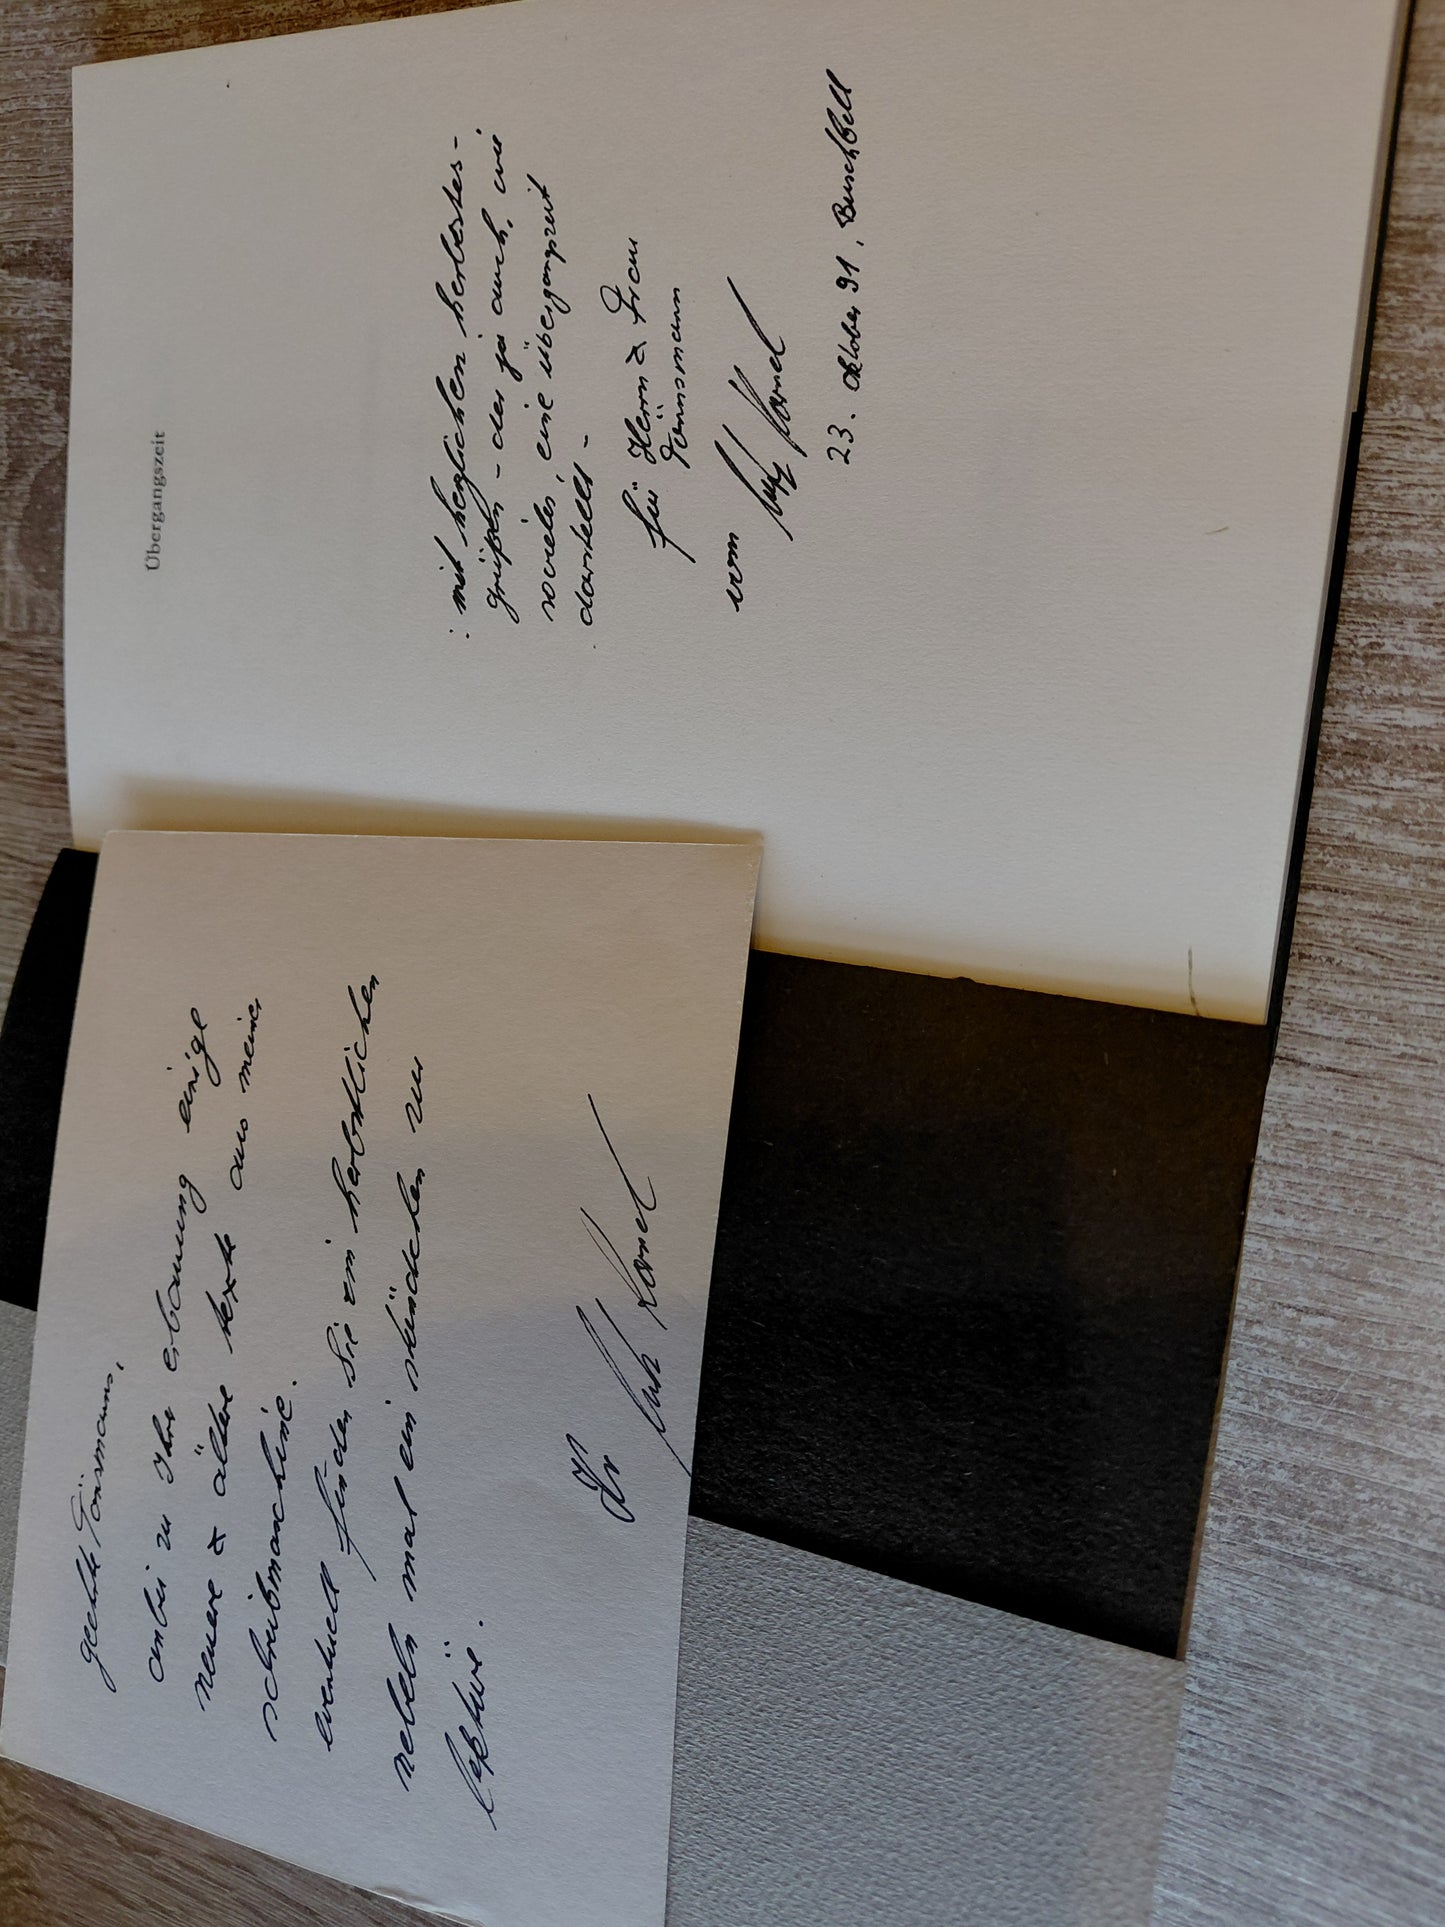 geehrte Tönsmanns,
anbei zu Ihr erbauung einige
neuere & ältere texte aus meiner
schreibmaschine.
eventuell finden Sie im herbstlichen
nebeln mal ein stündchen zur
lektüre.
Ihr
Übergangszeit
: mit herzlichen herbstes-
grüßen - der ja auch, wie
so vieles, eine übergangszeit
darstellt -
für Herrn & Frau
Tönsmann
vom
23. Oktober 91, Buschbell